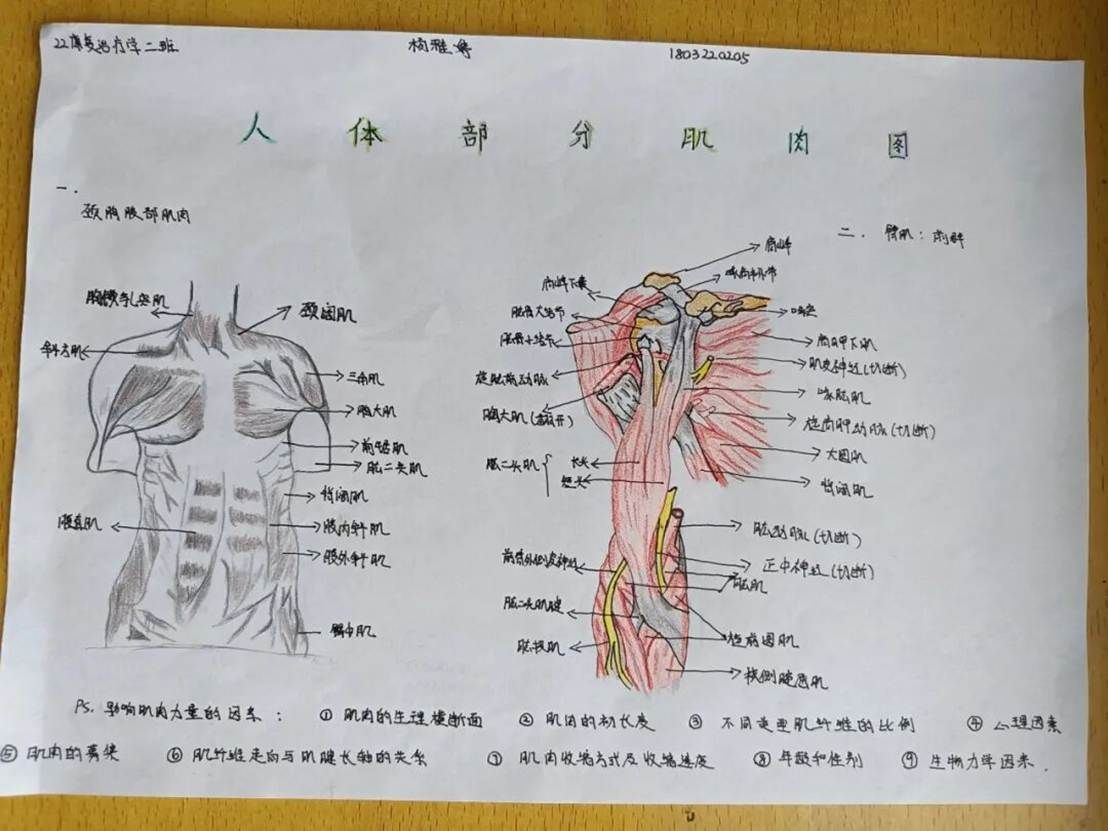 22康复治疗学二班 杨雅婷 1803220205
人体部分肌肉图
一.
颈胸腹部肌肉
胸锁乳突肌
斜方肌
腹直肌
颈阔肌
三角肌
胸大肌
前锯肌
肱二头肌
背阔肌
腹内斜肌
腹外斜肌
臀中肌
二. 臂肌:前群
肩峰
肩峰下囊
肱骨大结节
肱骨小结节
旋肱前动脉
胸大肌(翻开)
肱二头肌 长头
短头
前臂外侧皮神经
肱二头肌腱
肱桡肌
喙肩韧带
喙突
肩胛下肌
肌皮神经(切断)
喙肱肌
旋肩胛动脉(切断)
大圆肌
背阔肌
肱动脉(切断)
正中神经(切断)
肱肌
旋前圆肌
桡侧腕屈肌
Ps. 影响肌肉力量的因素: ① 肌肉的生理横断面 ② 肌肉的初长度 ③ 不同类型肌纤维的比例 ④ 心理因素
⑤ 肌肉的募集 ⑥ 肌纤维走向与肌腱长轴的关系 ⑦ 肌肉收缩方式及收缩速度 ⑧ 年龄和性别 ⑨ 生物力学因素.